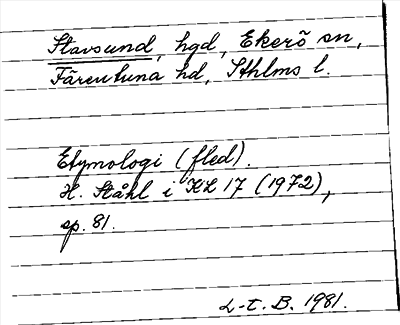 Stavsund, hgd, Ekerö sn,
Färentuna hd, Sthlms l.
Etymologi (fled).
H. Ståhl i KL 17 (1972),
sp. 81.
L-t. B. 1981.